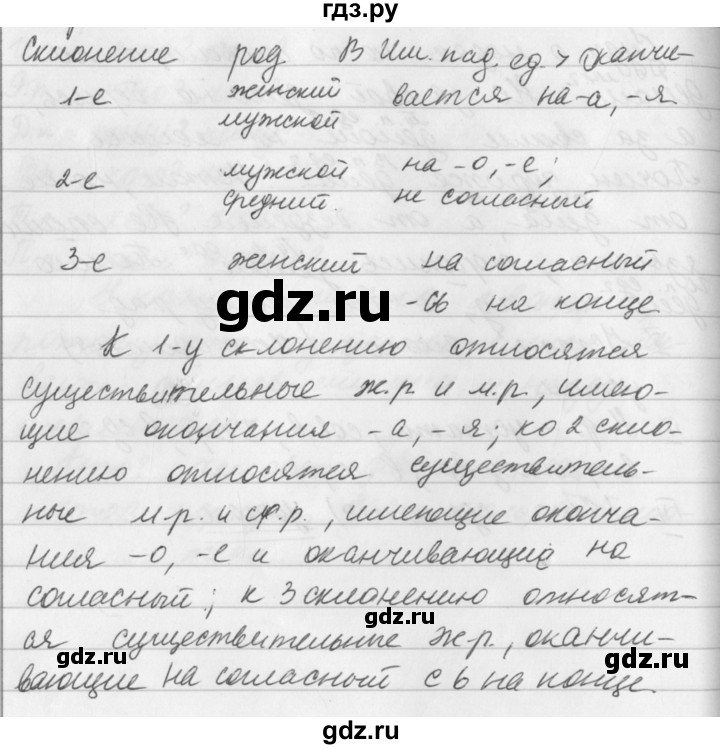 гдз.ру
Склонение род В Им. пад. ед. ч. оканчи-
1-е женский вается на -а, -я
мужской
2-е мужской на -о, -е;
средний. не согласный
3-е женский на согласный
gdz.ru
-сь на конце
К 1-у склонению относятся
существительные ж.р и м.р., имею-
щие окончания -а, -я; ко 2 скло-
нению относятся существитель-
ные м.р. и ср.р., имеющие оконча-
ния -о, -е и оканчивающие на
согласный; к 3 склонению относят-
ся существительные ж.р., оканчи-
gdz.ru gdz.ru
вающие на согласный с ь на конце.
gdz.ru